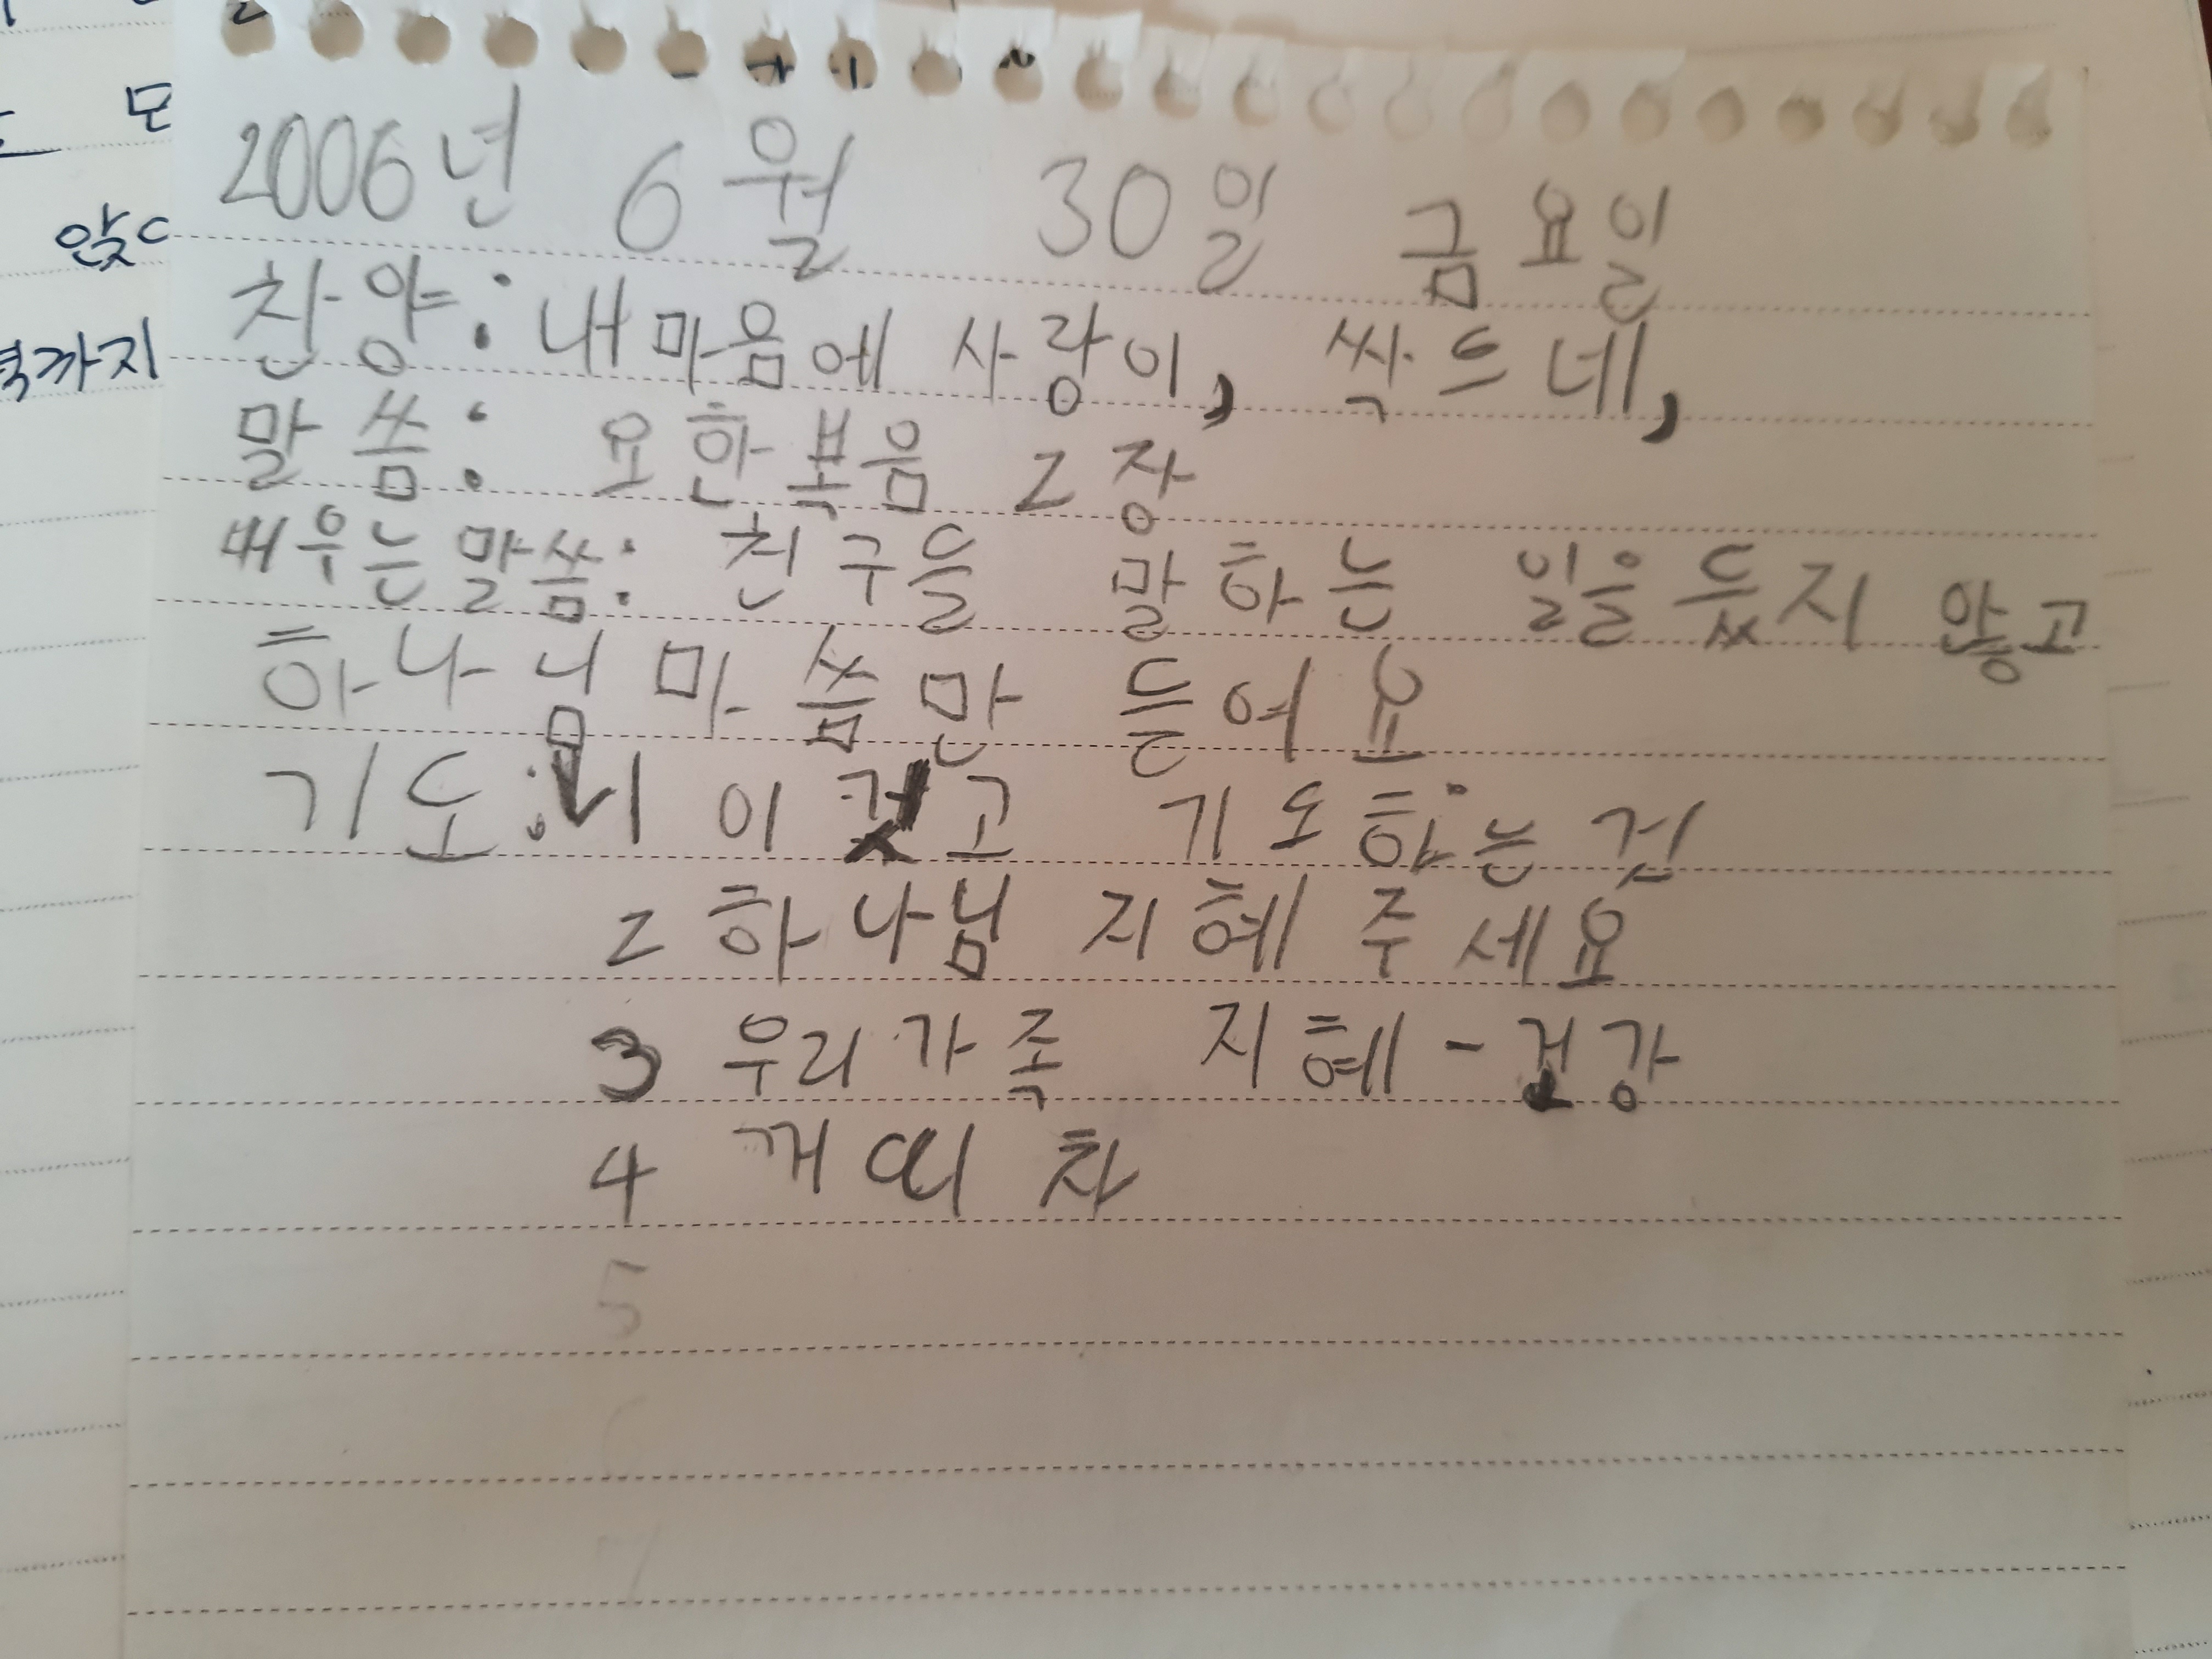 2006년 6월 30일 금요일
찬양: 내 마음에 사랑이, 싹드네,
말씀: 요한복음 2장
배우는말씀: 친구들 말하는 일을 듰지 않고
하나님 마씀만 듣어요
기도: 1 이 고 기도하는 것
2 하나님 지혜 주세요
3 우리가족 지혜 - 건강
4
5
6
7
모
앉
까지